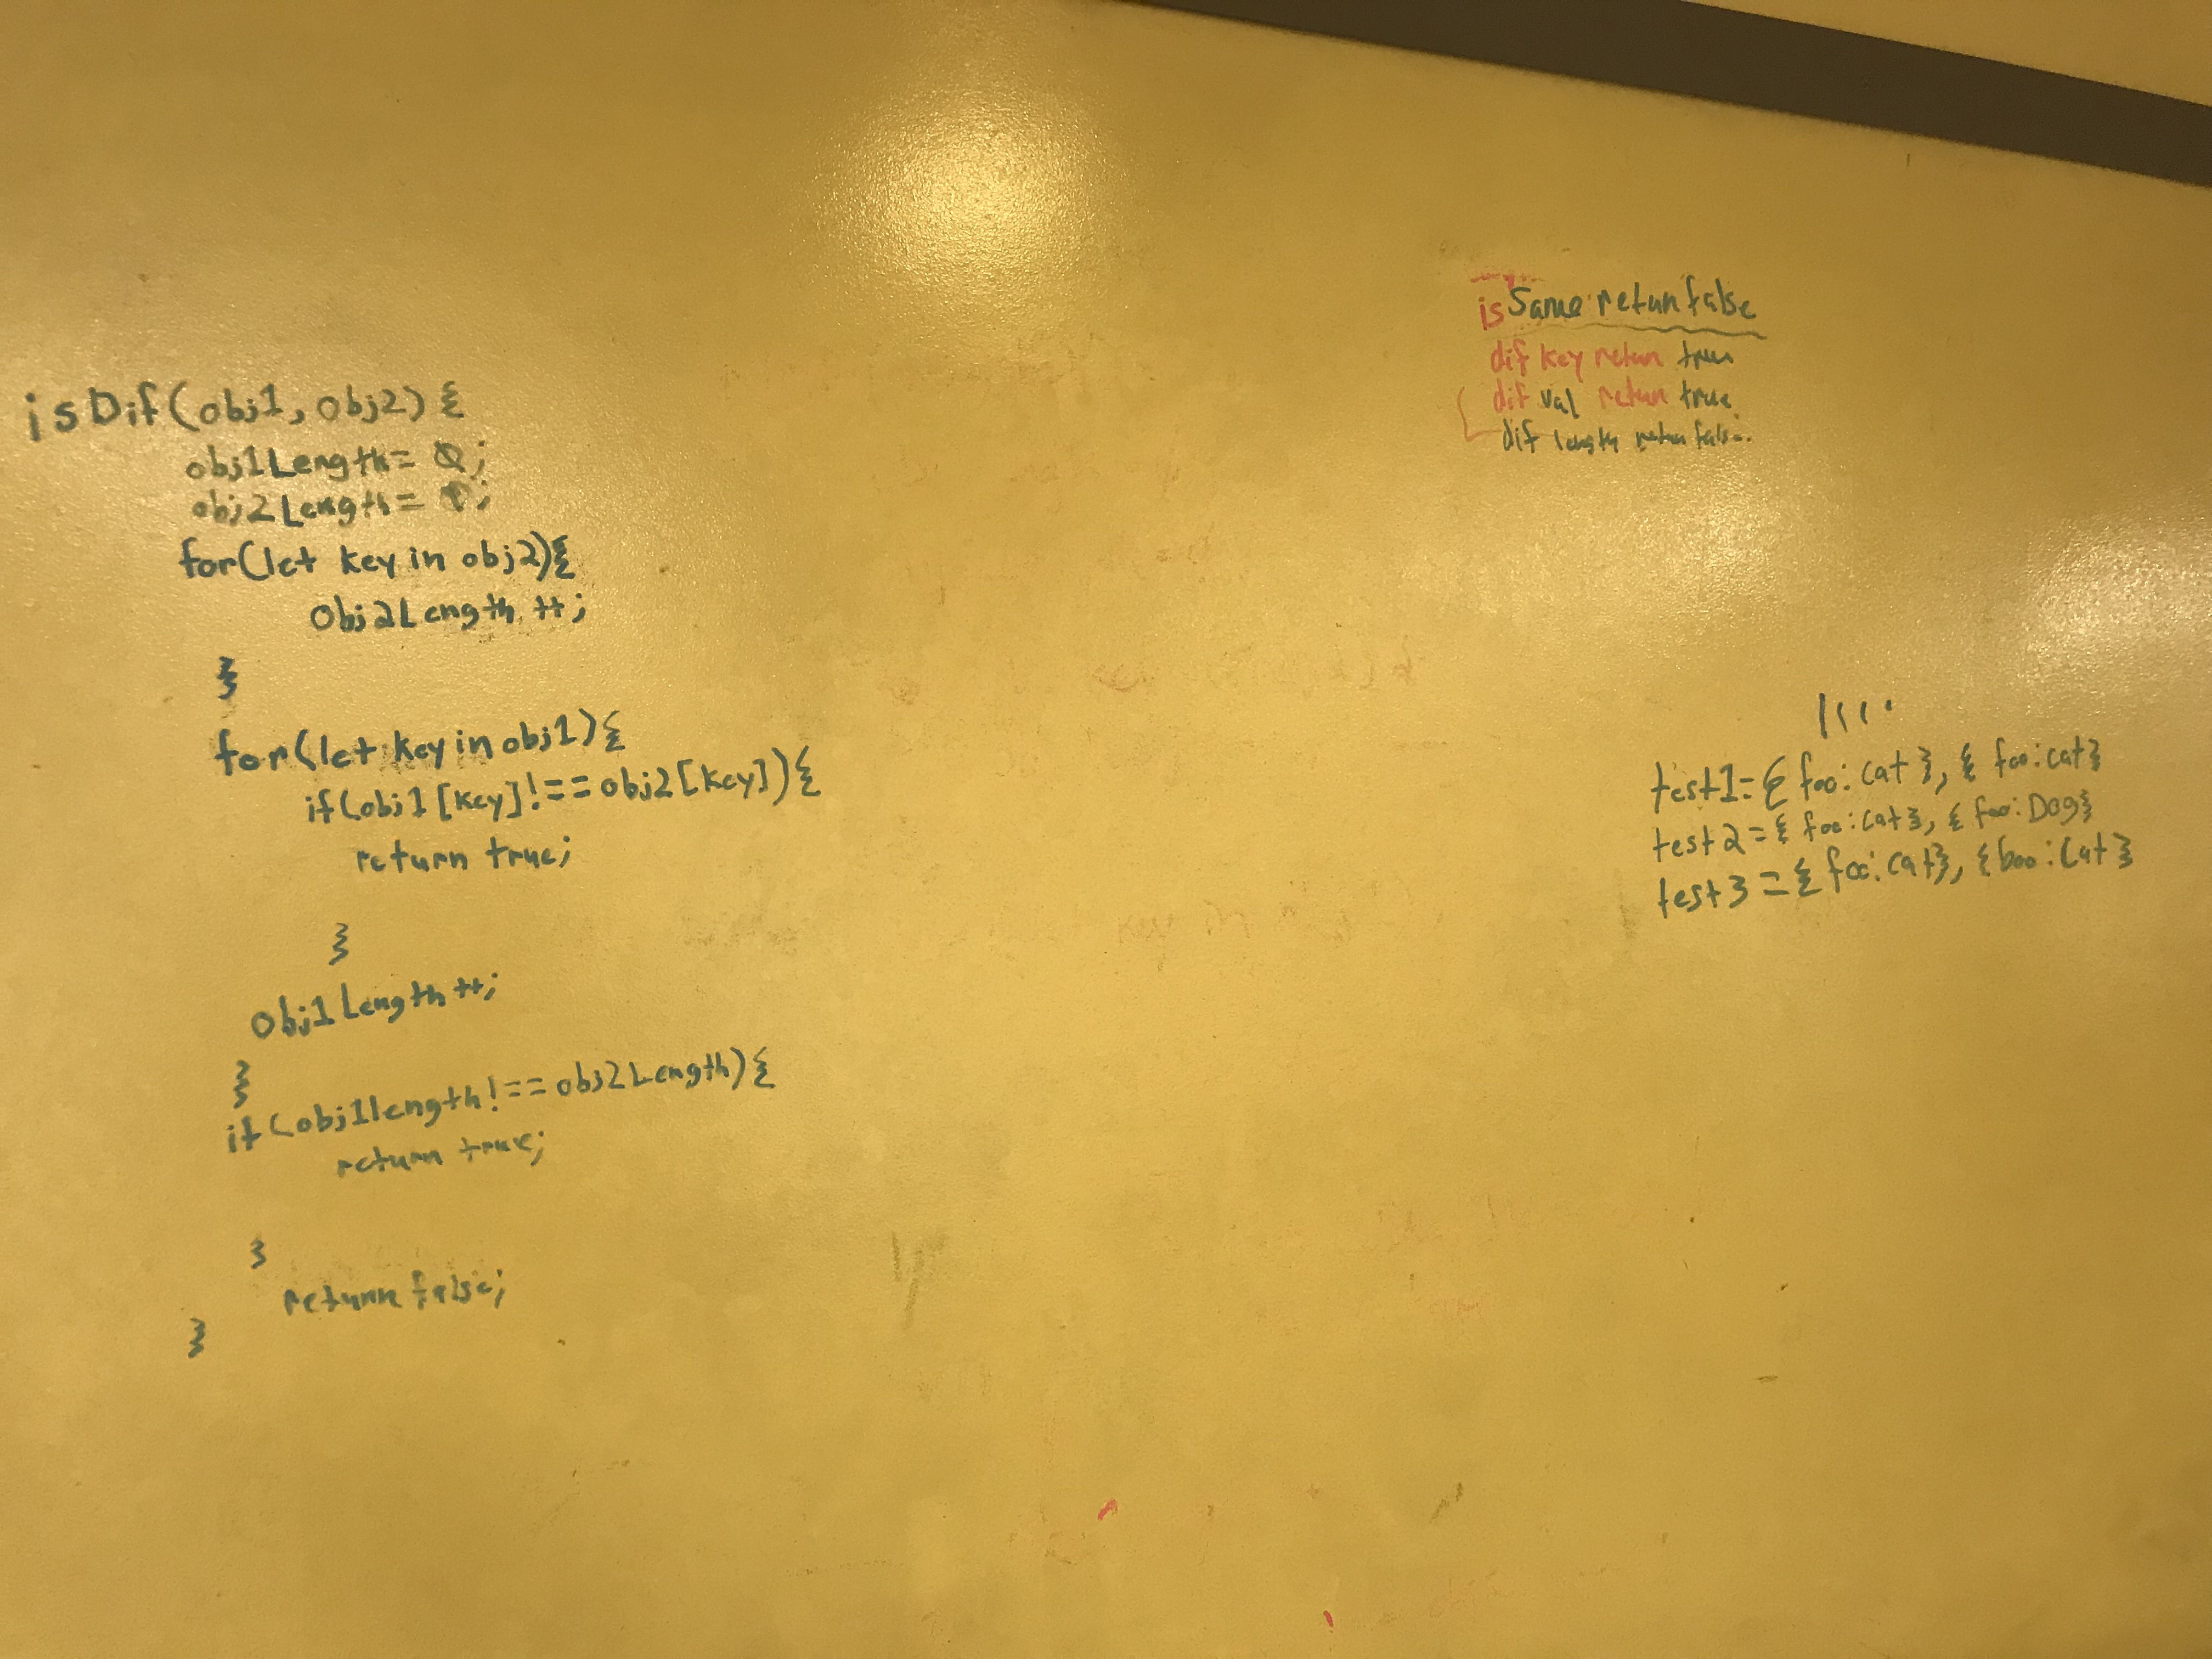 isDif(obj1, obj2) {
obj1Length = 0;
obj2Length = 0;
for(let key in obj2){
obj2Length ++;
}
for(let key in obj1){
if(obj1[key]!==obj2[key]){
return true;
}
obj1Length ++;
}
if(obj1length!==obj2Length){
return true;
}
return false;
}
isSame retun false
dif key retun true
dif val retun true
dif length retun false.
test1={foo:cat}, {foo:cat}
test2={foo:cat}, {foo:Dog}
test3={foo:cat}, {boo:Cat}